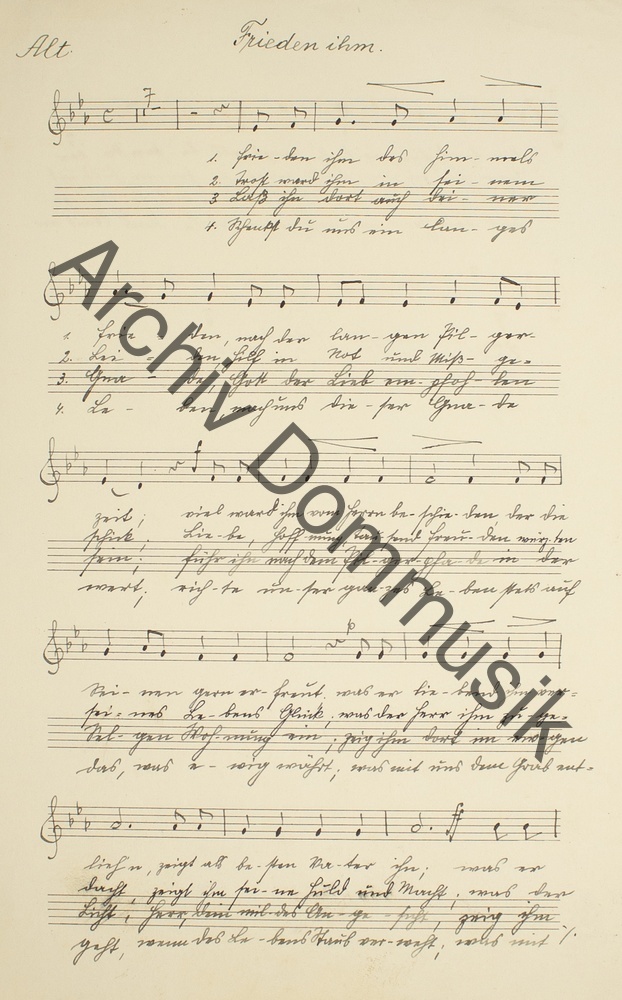 Alt.
Frieden ihm.
7
1. Frie - den ihm des Him - mels
2. Trost ward ihm in sei - nem
3 Laß ihn dort auch dei - ner
4. Schenkst du uns ein lan - ges
1. Frie - den, nach der lan - gen Pil - ger-
2. Lei - den, Hilf in Not und Miß - ge-
3. Gna - de, Gott der Lieb em - pfoh - len
4. Le - ben, nach uns die - ser Gna - de
f
zeit; viel ward ihm vom Herrn be - schie - den, der die
schick; Lie - be, Hoff nung tau send Freu - den
sein; führ ihn nach dem Pil - ger - pfa - de in der
wert; rich - te un - ser gan - zes Le - ben stets auf
p
Sei - nen gern er - freut, was er lie - bend
sei - nes Le - bens Glück, was der Herr ihm
Sel - gen Woh - nung ein; zeig ihm dort im ew - gen
das, was e - wig währt; was mit uns dem Grab ent-
ff
lieh'n, zeigt als be - sten Va - ter ihn; was er
dacht, zeigt ihm sei - ne Huld und Macht; was der
Licht, Herr, dein mil - des An - ge - sicht, zeig ihm
geht, wenn des Le - bens Staub ver - weht; was mit ./.
Archiv Dommusik